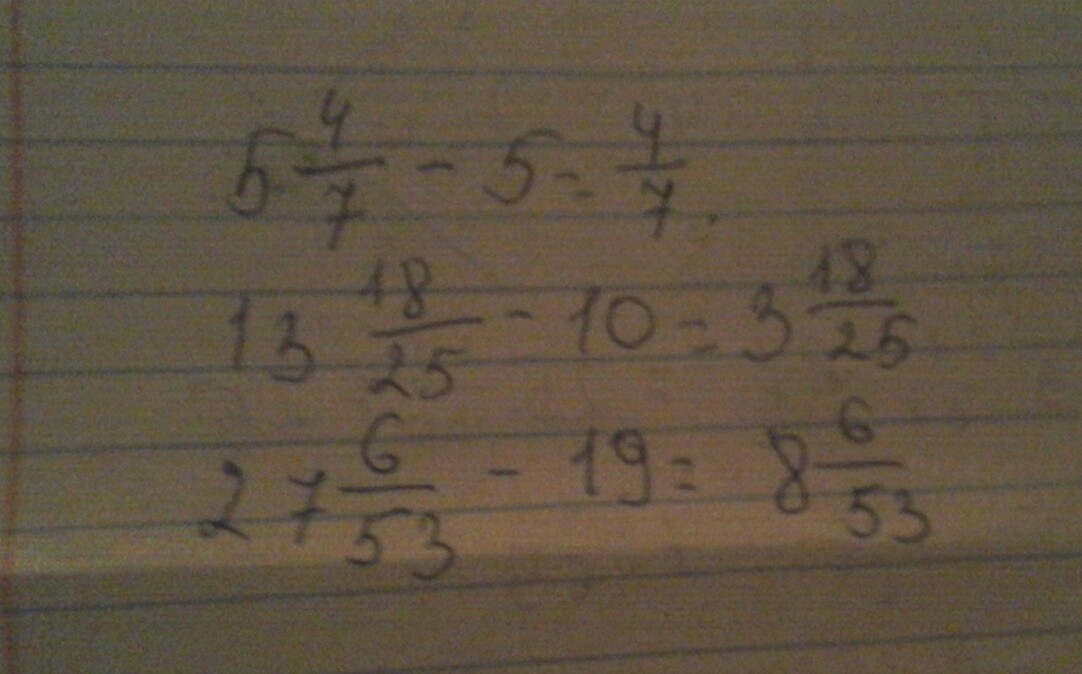 5 4/7 - 5 = 4/7.
13 18/25 - 10 = 3 18/25
27 6/53 - 19 = 8 6/53